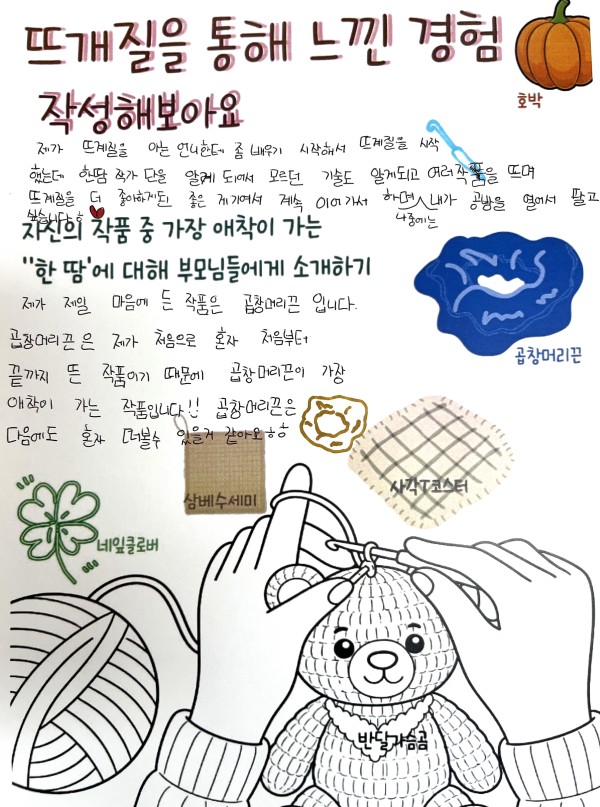 뜨개질을 통해 느낀 경험
작성해보아요
호박
제가 뜨계질을 아는 언니한테 좀 배우기 시작해서 뜨계질을 시작
했는데 한땀 작가 단을 알게 되어서 모르던 기술도 알게되고 여러작품을 뜨며
뜨계질을 더 좋아하게된 좋은 계기여서 계속 이어가서 하면서 나중에는 내가 공방을 열어서 팔고
싶습니다ㅎ
자신의 작품 중 가장 애착이 가는
"한 땀'에 대해 부모님들에게 소개하기
제가 제일 마음에 든 작품은 곱창머리끈 입니다.
곱창머리끈은 제가 처음으로 혼자 처음부터
끝까지 뜬 작품이기 때문에 곱창머리끈이 가장
애착이 가는 작품입니다!! 곱창머리끈은
다음에도 혼자 떠볼수 있을거 같아요ㅎㅎ
곱창머리끈
삼베수세미
사각T코스터
네잎클로버
반달가슴곰